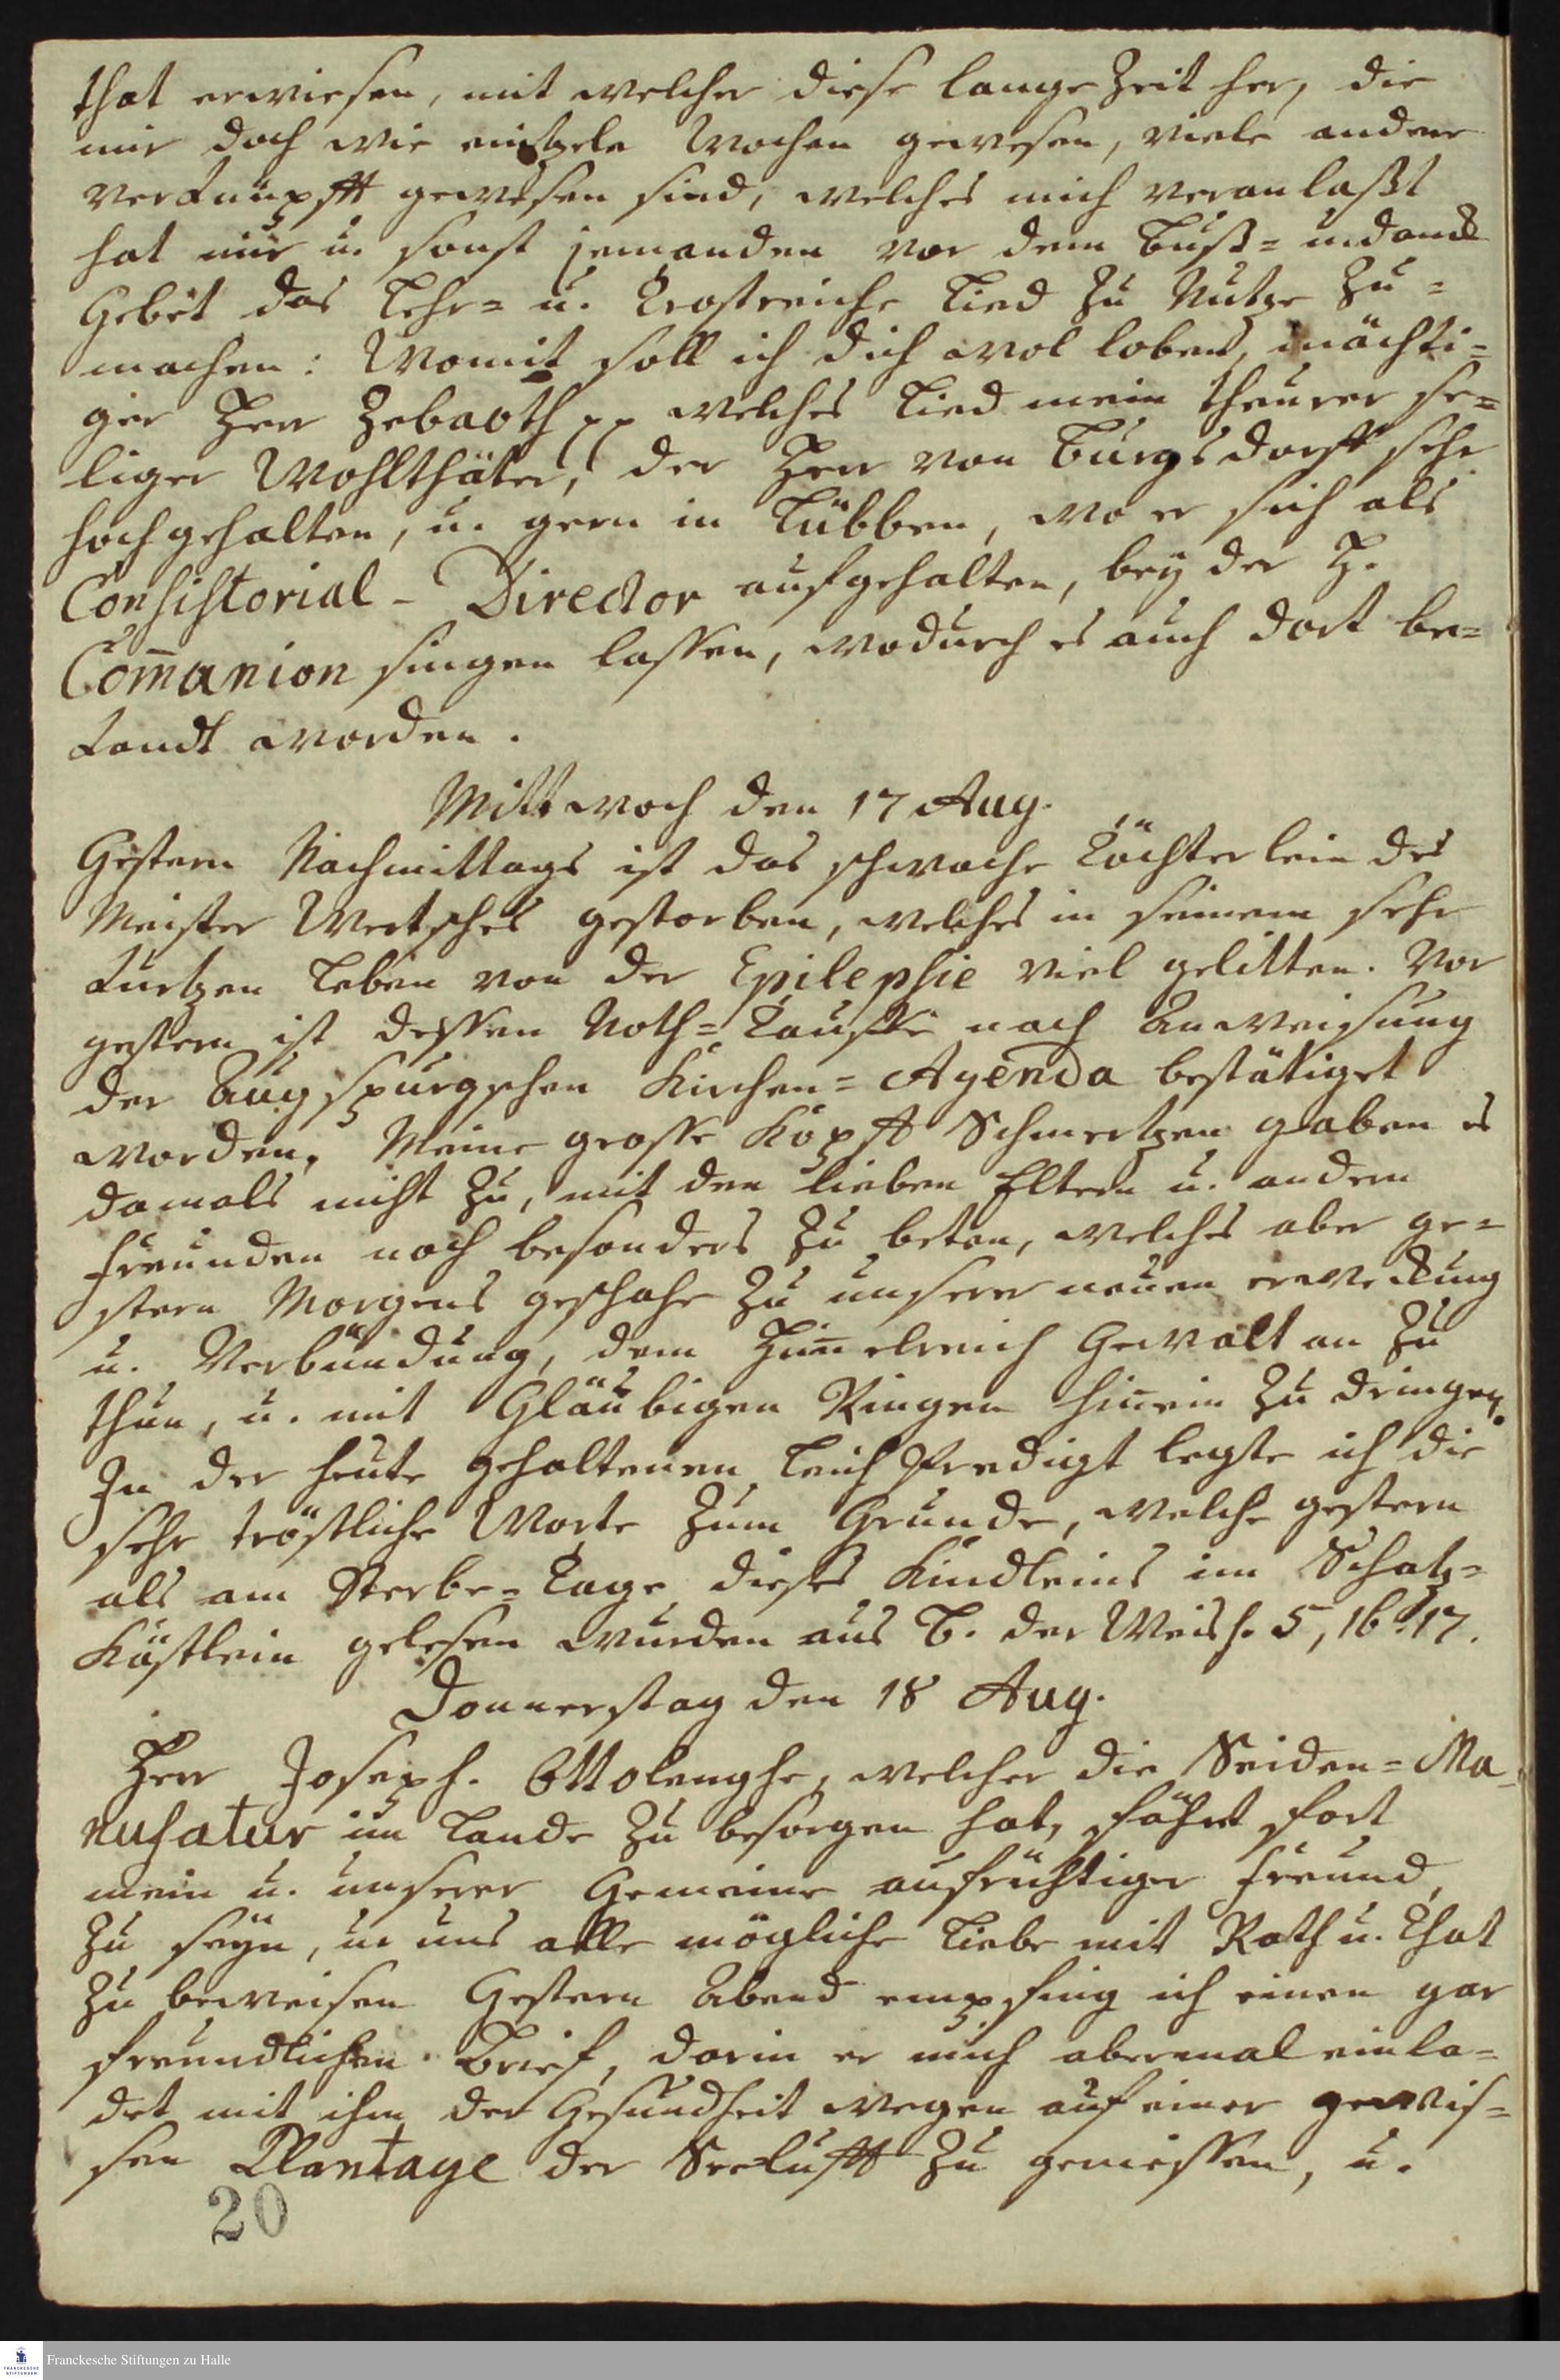 that erwiesen, mit welcher diese lange Zeit her, die
mir doch wie eintzele Wochen gewesen, viele andere
verknüpfft gewesen sind, welches mich veranlaßt
hat mir u. sonst jemanden vor dem Buß= u. Danck
Gebet das Lehr= u. Trostreiche Lied zu Nutze zu=
machen: Womit soll ich dich wol loben, mächti=
ger Herr Zebaoth pp welches Lied mein theurer se=
liger Wohlthäter, der Herr von Burgsdorff sehr
hochgehalten, u. gern in Lübben, wo er sich als
Consistorial-Director aufgehalten, bey der H.
Com̄union singen lassen, wodurch es auch dort be=
kandt worden.
Mittwoch den 17 Aug.
Gestern Nachmittags ist das schwache Töchterlein des
Meister Wertsches gestorben, welches in seinem sehr
kurtzen Leben von der Epilepsie viel gelitten. Vor
gestern ist dessen Noth=Tauffe nach Anweisung
der Augspurgschen Kirchen=Agenda bestätiget
worden. Meine grosse Kopff Schmertzen gaben es
damals nicht zu, mit den lieben Eltern u. andern
Freunden noch besonders zu beten, welches aber ge=
stern Morgens geschahe zu unserer neuen erweckung
u. Verbündung, dem Him̄elreich Gewalt an zu
thun, u. mit Gläubigen Ringen hinein zu dringen.
In der heute gehaltenen Leich Predigt legte ich die
sehr tröstliche Worte zum Grunde, welche gestern
als am Sterbe=Tage dieses Kindleins im Schatz=
Kästlein gelesen wurden aus B. der Weish. 5, 16. 17.
Donnerstag den 18 Aug.
Herr Joseph. Ottolenghe, welcher die Seiden=Ma=
nufatur im Lande zu besorgen hat, fährt fort
mein u. unserer Gemeine aufrichtiger Freund,
zu seyn, u. uns alle mögliche Liebe mit Rath u. That
zu beweisen Gestern Abend empfing ich einen gar
freundlichen Brief, darin er mich abermal einla=
det mit ihm der Gesundheit wegen auf einer gewis=
sen Plantage der Seelufft zu geniessen, u.
20
FRANCKESCHE STIFTUNGEN
Franckesche Stiftungen zu Halle